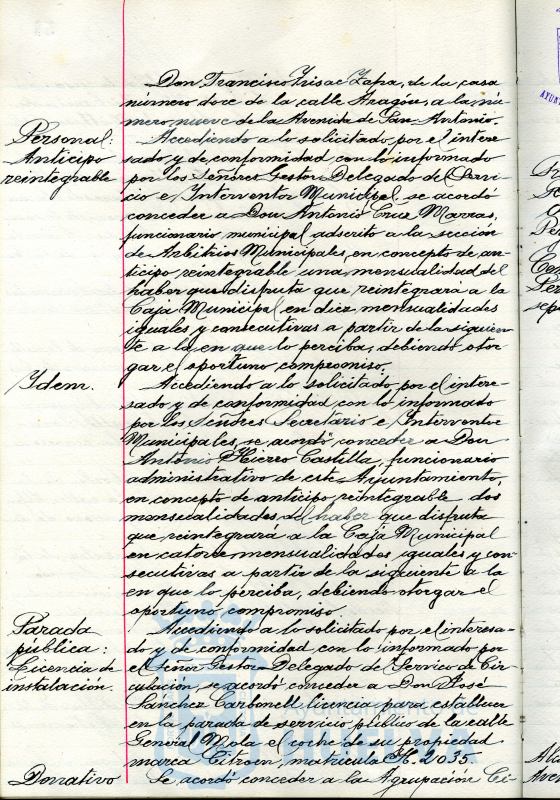 Don Francisco Frisac Zapa, de la casa
número doce de la calle Aragón, a la nú-
mero nueve de la Avenida de San Antonio.
Personal:
Anticipo
reintegrable
Accediendo a lo solicitado por el intere-
sado y de conformidad con lo informado
por los Señores Gestor Delegado del Servi-
cio e Interventor Municipal se acordó
conceder a Don Antonio Cruz Marras,
funcionario municipal adscrito a la sección
de Arbitrios Municipales, en concepto de an-
ticipo reintegrable una mensualidad del
haber que disfruta que reintegrará a la
Caja Municipal en diez mensualidades
iguales y consecutivas a partir de la siguien-
te a la en que lo perciba, debiendo otor-
gar el oportuno compromiso.
Idem.
Accediendo a lo solicitado por el intere-
sado y de conformidad con lo informado
por los Señores Secretario e Interventor
Municipales, se acordó conceder a Don
Antonio Hierro Castilla, funcionario
administrativo de este Ayuntamiento,
en concepto de anticipo reintegrable dos
mensualidades del haber que disfruta
que reintegrará a la Caja Municipal
en catorce mensualidades iguales y con-
secutivas a partir de la siguiente a la
en que lo perciba, debiendo otorgar el
oportuno compromiso.
Parada
pública:
Licencia de
instalación.
Accediendo a lo solicitado por el interesa-
do y de conformidad con lo informado por
el Señor Gestor Delegado de Servicio de Cir-
culación, se acordó conceder a Don José
Sánchez Carbonell licencia para establecer
en la parada de servicio público de la calle
General Mola el coche de su propiedad
marca Citroen, matrícula H. 2035.
Donativo
Se acordó conceder a la Agrupación Ci-
HUELVA